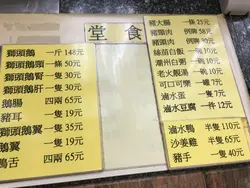 堂食
獅頭鵝 一斤 148元
獅頭鵝頸 一條 50元
獅頭鵝腎 一隻 30元
獅頭鵝肝 一隻 30元
鵝腸 四兩 65元
豬耳 一隻
獅頭鵝翼 一隻 35元
鵝翼 一隻 19元
鵝舌 四兩 65元
豬大腸 一條 25元
豬頸肉 例牌 58元
豬頭肉 例牌 30元
絲苗白飯 一碗 10元
潮州白粥 一碗 10元
老火靚湯 一碗 10元
可口可樂 一罐 10元
滷水蛋 一隻 7元
滷水豆腐 一件 12元
滷水鴨 半隻 110元
沙姜雞 半隻 65元
豬手 一隻 40元